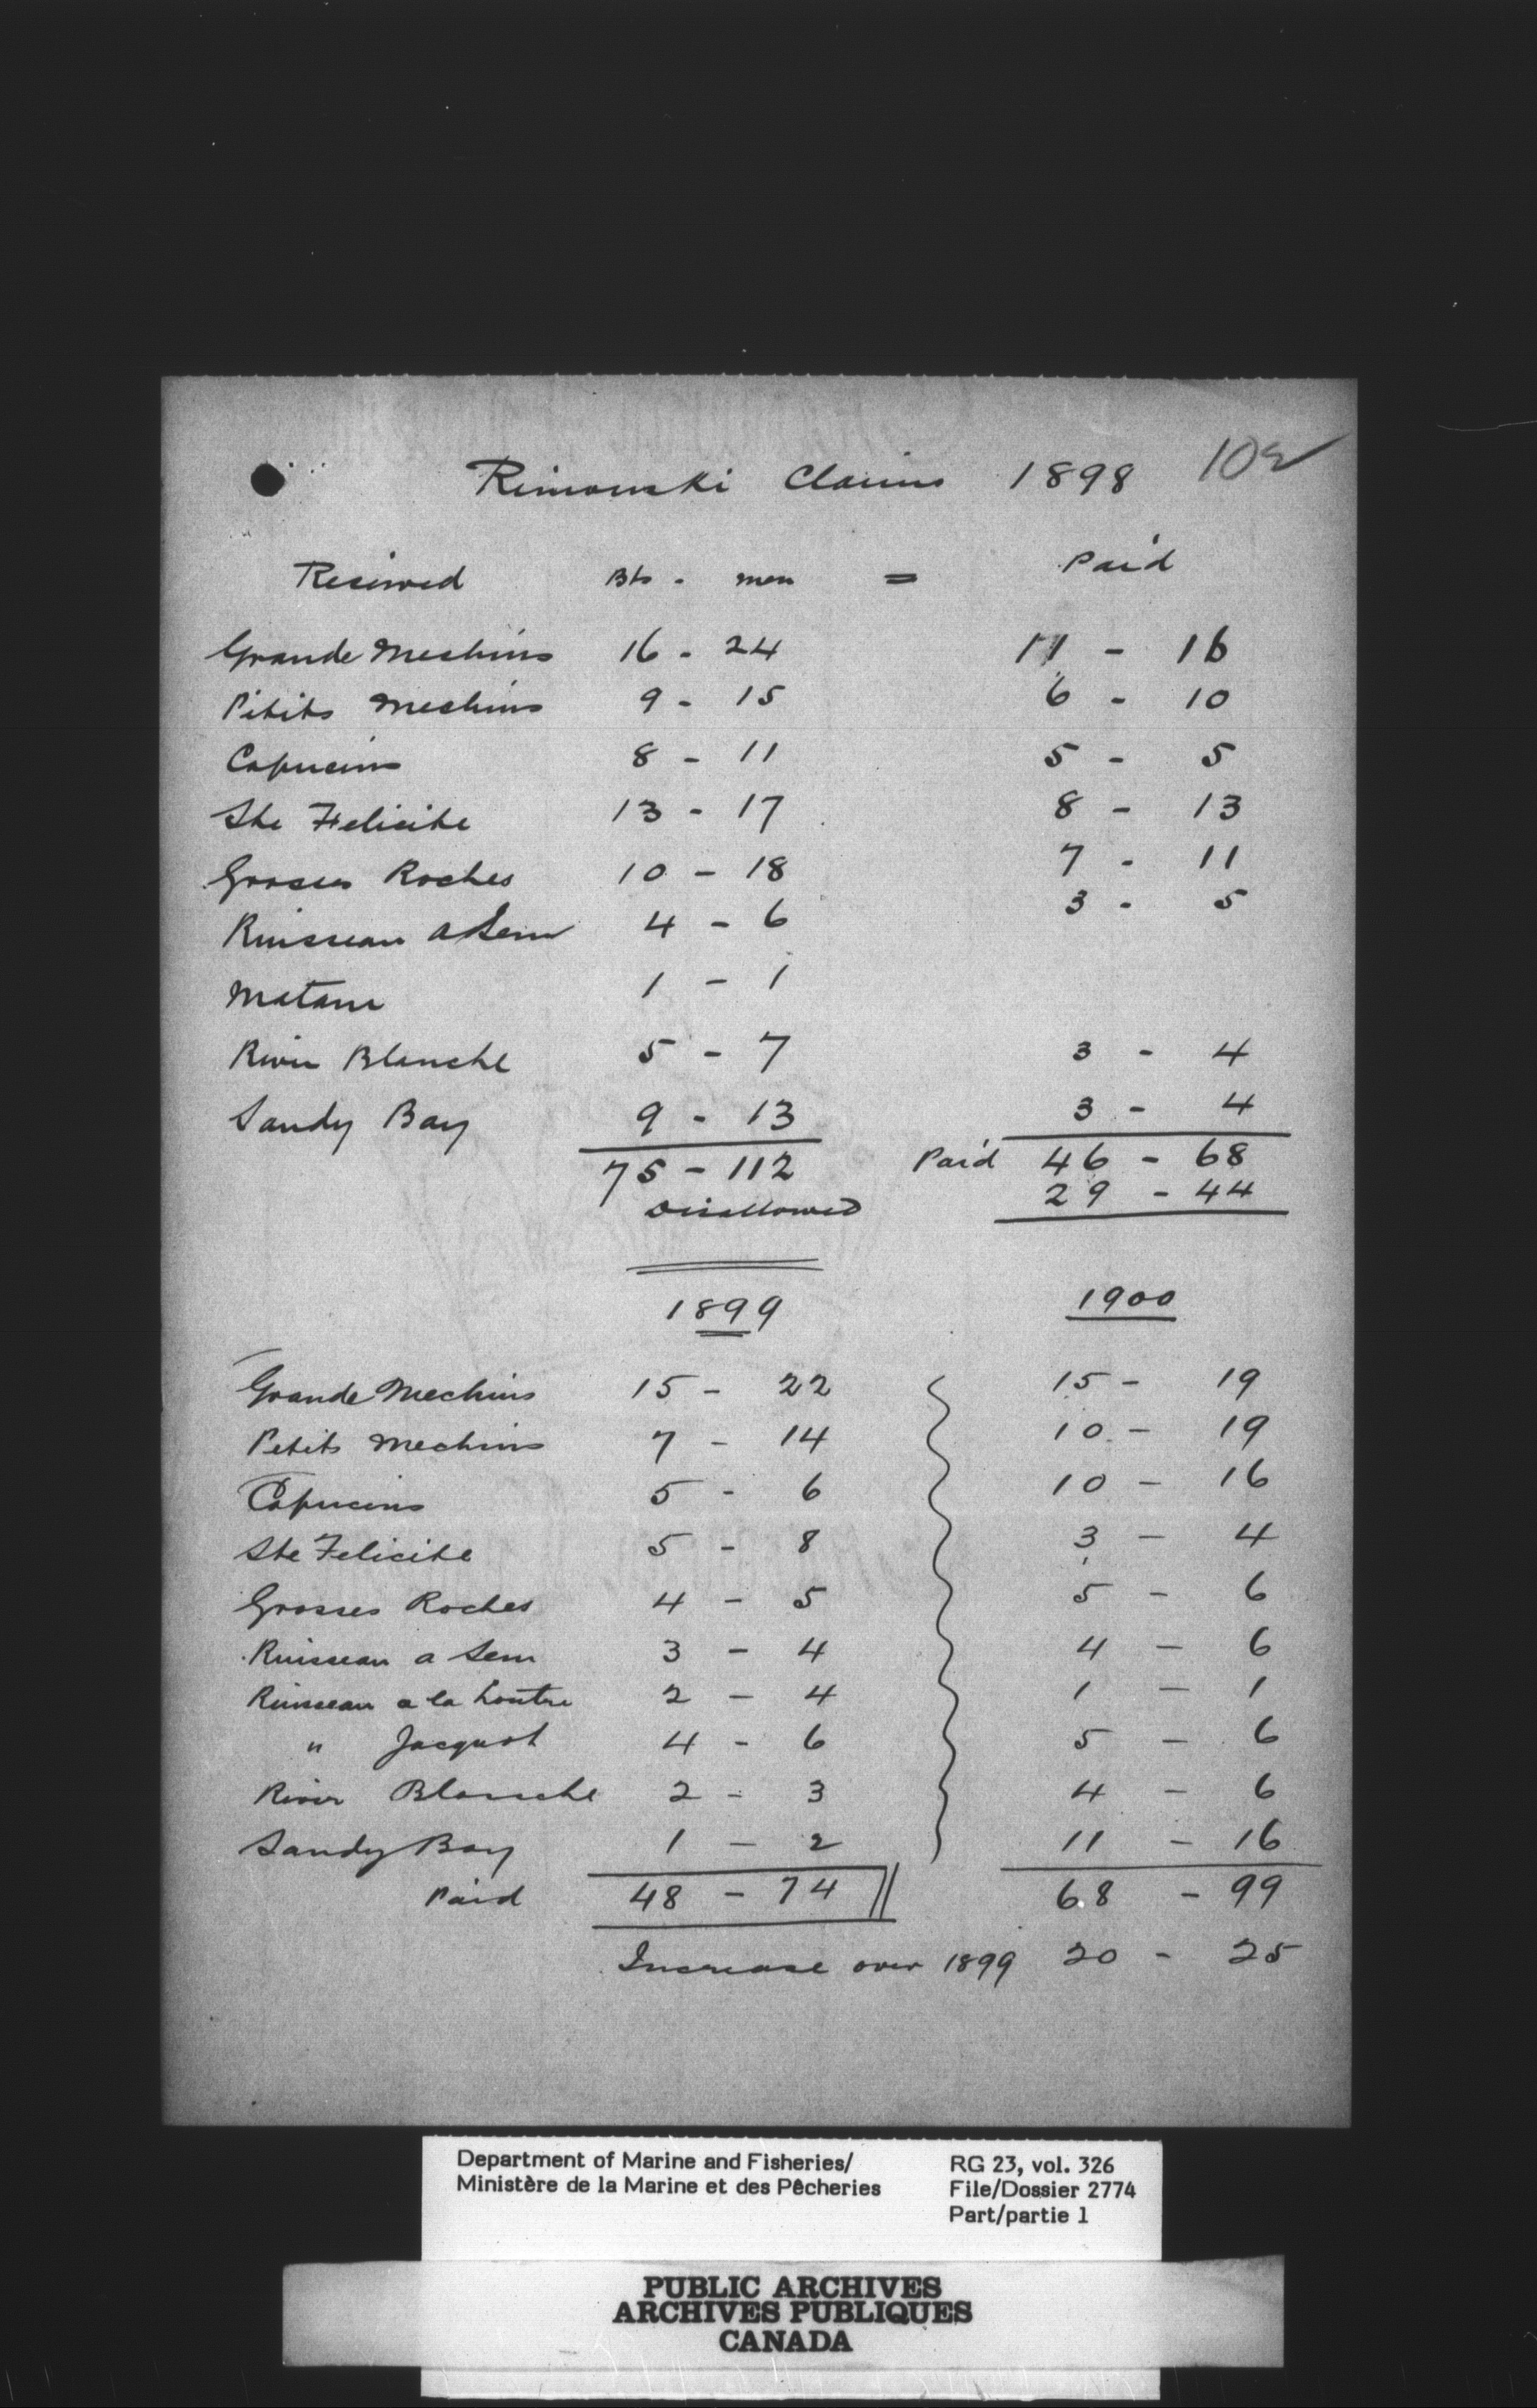 Rimouski Claims 1898 102
Received Bts - men = Paid
Grande Mechins 16 - 24 11 - 16
Pitits Mechins 9 - 15 6 - 10
Capucins 8 - 11 5 - 5
Ste Felicite 13 - 17 8 - 13
Grosses Roches 10 - 18 7 - 11
Ruisseau a Sem 4 - 6 3 - 5
Matane 1 - 1
River Blanche 5 - 7 3 - 4
Sandy Bay 9 - 13 3 - 4
75 - 112 Paid 46 - 68
Disallowed 29 - 44
1899 1900
Grande Mechins 15 - 22 15 - 19
Petits Mechins 7 - 14 10 - 19
Capucins 5 - 6 10 - 16
Ste Felicite 5 - 8 3 - 4
Grosses Roches 4 - 5 5 - 6
Ruisseau a Sem 3 - 4 4 - 6
Ruisseau a la Loutre 2 - 4 1 - 1
" Jacquot 4 - 6 5 - 6
River Blanche 2 - 3 4 - 6
Sandy Bay 1 - 2 11 - 16
Paid 48 - 74 68 - 99
Increase over 1899 20 - 25
Department of Marine and Fisheries/ RG 23, vol. 326
Ministère de la Marine et des Pêcheries File/Dossier 2774
Part/partie 1
PUBLIC ARCHIVES
ARCHIVES PUBLIQUES
CANADA